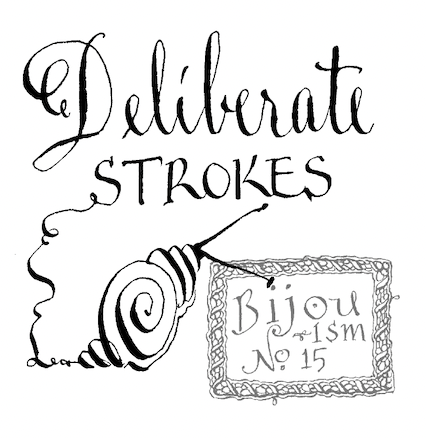 Deliberate
STROKES
Bijou
-ism
No. 15